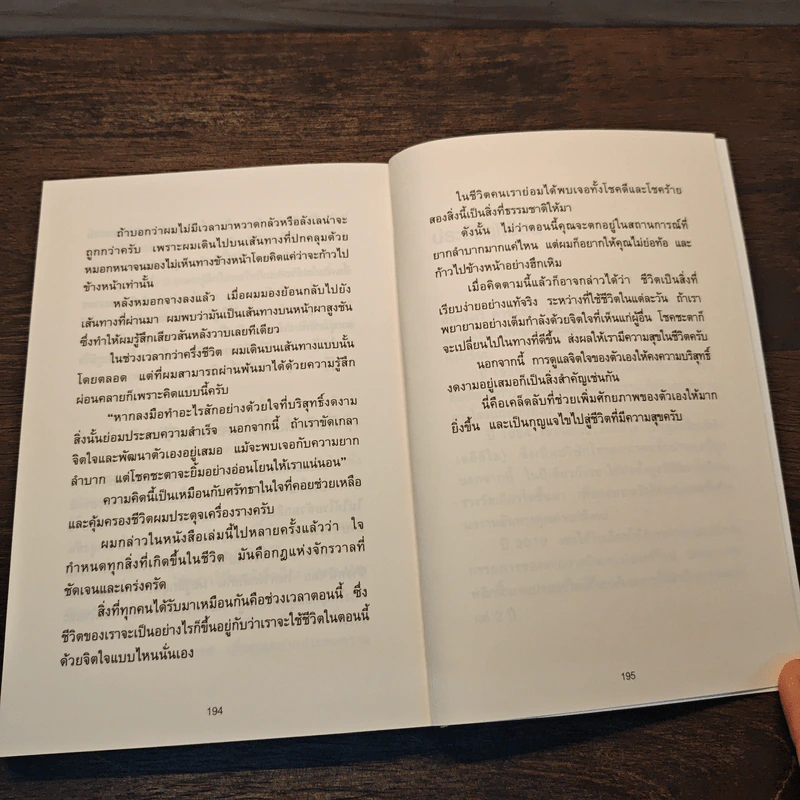 ถ้าบอกว่าผมไม่มีเวลามาหวาดกลัวหรือลังเลน่าจะ
ถูกกว่าครับ เพราะผมเดินไปบนเส้นทางที่ปกคลุมด้วย
หมอกหนาจนมองไม่เห็นทางข้างหน้าโดยคิดแค่ว่าจะก้าวไป
ข้างหน้าเท่านั้น
หลังหมอกจางลงแล้ว เมื่อผมมองย้อนกลับไปยัง
เส้นทางที่ผ่านมา ผมพบว่ามันเป็นเส้นทางบนหน้าผาสูงชัน
ซึ่งทำให้ผมรู้สึกเสียวสันหลังวาบเลยทีเดียว
ในช่วงเวลากว่าครึ่งชีวิต ผมเดินบนเส้นทางแบบนั้น
โดยตลอด แต่ที่ผมสามารถผ่านพ้นมาได้ด้วยความรู้สึก
ผ่อนคลายก็เพราะคิดแบบนี้ครับ
“หากลงมือทำอะไรสักอย่างด้วยใจที่บริสุทธิ์งดงาม
สิ่งนั้นย่อมประสบความสำเร็จ นอกจากนี้ ถ้าเราขัดเกลา
จิตใจและพัฒนาตัวเองอยู่เสมอ แม้จะพบเจอกับความยาก
ลำบาก แต่โชคชะตาจะยิ้มอย่างอ่อนโยนให้เราแน่นอน”
ความคิดนี้เป็นเหมือนกับศรัทธาในใจที่คอยช่วยเหลือ
และคุ้มครองชีวิตผมประดุจเครื่องรางครับ
ผมกล่าวในหนังสือเล่มนี้ไปหลายครั้งแล้วว่า ใจ
กำหนดทุกสิ่งที่เกิดขึ้นในชีวิต มันคือกฎแห่งจักรวาลที่
ชัดเจนและเคร่งครัด
สิ่งที่ทุกคนได้รับมาเหมือนกันคือช่วงเวลาตอนนี้ ซึ่ง
ชีวิตของเราจะเป็นอย่างไรก็ขึ้นอยู่กับว่าเราจะใช้ชีวิตในตอนนี้
ด้วยจิตใจแบบไหนนั่นเอง
194
ในชีวิตคนเราย่อมได้พบเจอทั้งโชคดีและโชคร้าย
สองสิ่งนี้เป็นสิ่งที่ธรรมชาติให้มา
ดังนั้น ไม่ว่าตอนนี้คุณจะตกอยู่ในสถานการณ์ที่
ยากลำบากมากแค่ไหน แต่ผมก็อยากให้คุณไม่ย่อท้อ และ
ก้าวไปข้างหน้าอย่างฮึกเหิม
เมื่อคิดตามนี้แล้วก็อาจกล่าวได้ว่า ชีวิตเป็นสิ่งที่
เรียบง่ายอย่างแท้จริง ระหว่างที่ใช้ชีวิตในแต่ละวัน ถ้าเรา
พยายามอย่างเต็มกำลังด้วยจิตใจที่เห็นแก่ผู้อื่น โชคชะตาก็
จะเปลี่ยนไปในทางที่ดีขึ้น ส่งผลให้เรามีความสุขในชีวิตครับ
นอกจากนี้ การดูแลจิตใจของตัวเองให้คงความบริสุทธิ์
งดงามอยู่เสมอก็เป็นสิ่งสำคัญเช่นกัน
นี่คือเคล็ดลับที่ช่วยเพิ่มศักยภาพของตัวเองให้มาก
ยิ่งขึ้น และเป็นกุญแจไขไปสู่ชีวิตที่มีความสุขครับ
195